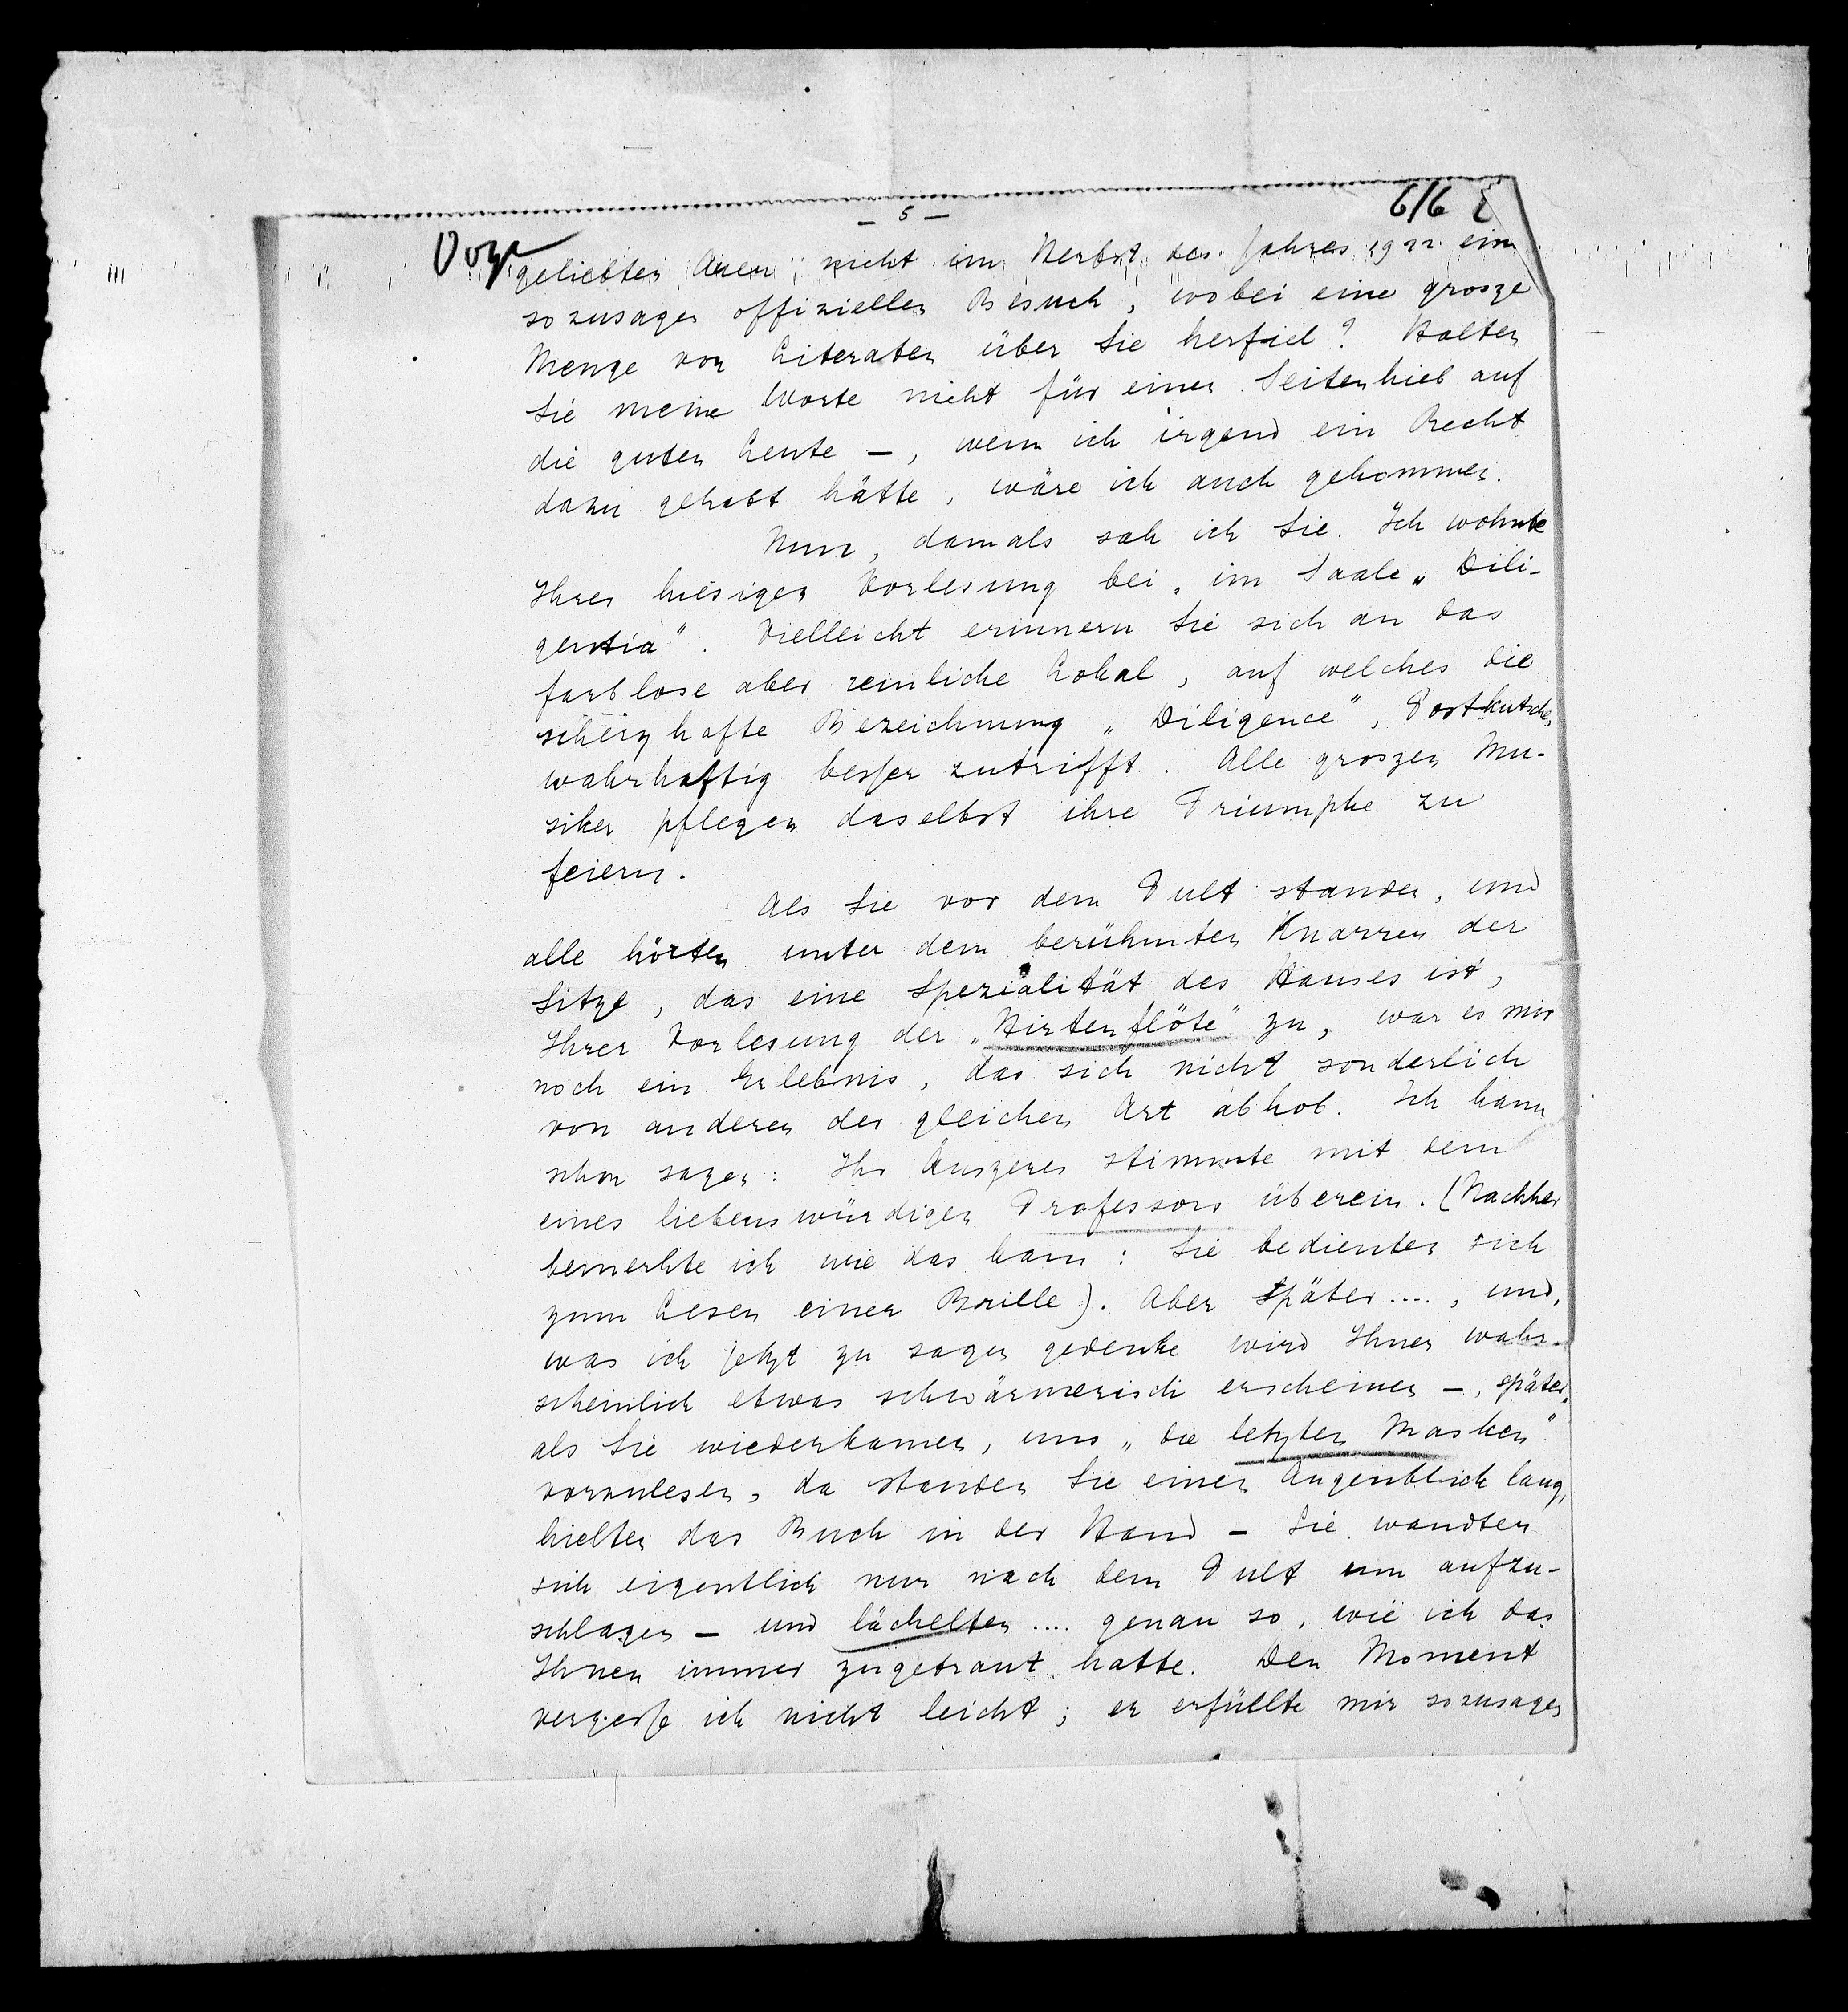 – 5 –
616
geliebten Haag nicht im Herbst des Jahres 1922 ein
sozusagen offizieller Besuch, wobei eine grosze
Menge von Literaten über Sie herfiel? Halten
Sie meine Worte nicht für einen Seitenhieb auf
die guten Leute –, wenn ich irgend ein Recht
dazu gehabt hätte, wäre ich auch gekommen.
Nun, damals sah ich Sie. Ich wohnte
Ihrer hiesigen Vorlesung bei, im Saale „Dili-
gentia". Vielleicht erinnern Sie sich an das
farblose aber reinliche Lokal, auf welches die
scherzhafte Bezeichnung „Diligence", Postkutsche,
wahrhaftig besser zutrifft. Alle groszen Mu-
siker pflegen daselbst ihre Triumphe zu
feiern.
Als Sie vor dem Pult standen, und
alle hörten unter dem berühmten Knarren der
Sitze, das eine Spezialität des Hauses ist,
Ihrer Vorlesung der „Hirtenflöte" zu, war es mir
noch ein Erlebnis, das sich nicht sonderlich
von anderen der gleichen Art abhob. Ich kann
schon sagen: Ihr Äuszeres stimmte mit dem
eines liebenswürdigen Professors überein. (Nachher
bemerkte ich wie das kam: Sie bedienten sich
zum Lesen einer Brille). Aber später...., und,
was ich jetzt zu sagen gedenke wird Ihnen wahr-
scheinlich etwas schwärmerisch erscheinen –, später,
als Sie wiederkamen, uns „die letzten Masken"
vorzulesen, da standen Sie einen Augenblick lang,
hielten das Buch in der Hand – Sie wandten
sich eigentlich nur nach dem Pult um aufzu-
schlagen – und lächelten .... genau so, wie ich das
Ihnen immer zugetraut hatte. Den Moment
vergesse ich nicht leicht; er erfüllte mir sozusagen